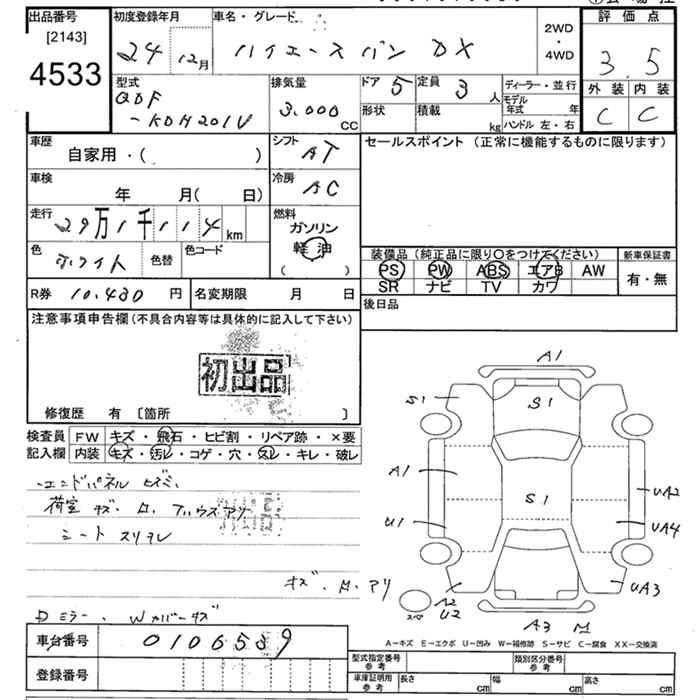 出品番号
[2143]
4533
初度登録年月
24 12月
車名・グレード
ハイエースバン DX
2WD
・
4WD
評価点
3.5
外装 内装
C C
型式
QDF
-KDH201V
排気量
3.000
CC
ドア 5
形状
定員 3 人
積載 kg
ディーラー・並行
モデル
年式 年
ハンドル 左・右
車歴
自家用・( )
シフト AT
車検
年 月( 日)
冷房 AC
走行
29万1千114 km
燃料
ガソリン
軽油
( )
色
ホワイト
色替
色コード
R券 10.430 円
名変期限 月 日
セールスポイント (正常に機能するものに限ります)
装備品 (純正品に限り〇をつけてください)
新車保証書
PS PW ABS エアB AW
SR ナビ TV カワ
有・無
後日品
注意事項申告欄(不具合内容等は具体的に記入して下さい)
初出品
修復歴 有 [箇所 ]
検査員
記入欄
FW キズ・飛石・ヒビ割・リペア跡・×要
内装 キズ・汚レ・コゲ・穴・スレ・キレ・破レ
荷室
シート スリキレ
Dミラー、Wカバーキズ
A1
S1
S1
A1
S1
UA2
U1
UA4
UA3
A2
U2
A3
M
A−キズ E−エクボ U−凹み W−補修跡 S−サビ C−腐食 XX−交換済
車台番号
0106539
登録番号
型式指定番号
参考
類別区分番号
参考
車庫証明用
参考
長さ cm
幅 cm
高さ cm